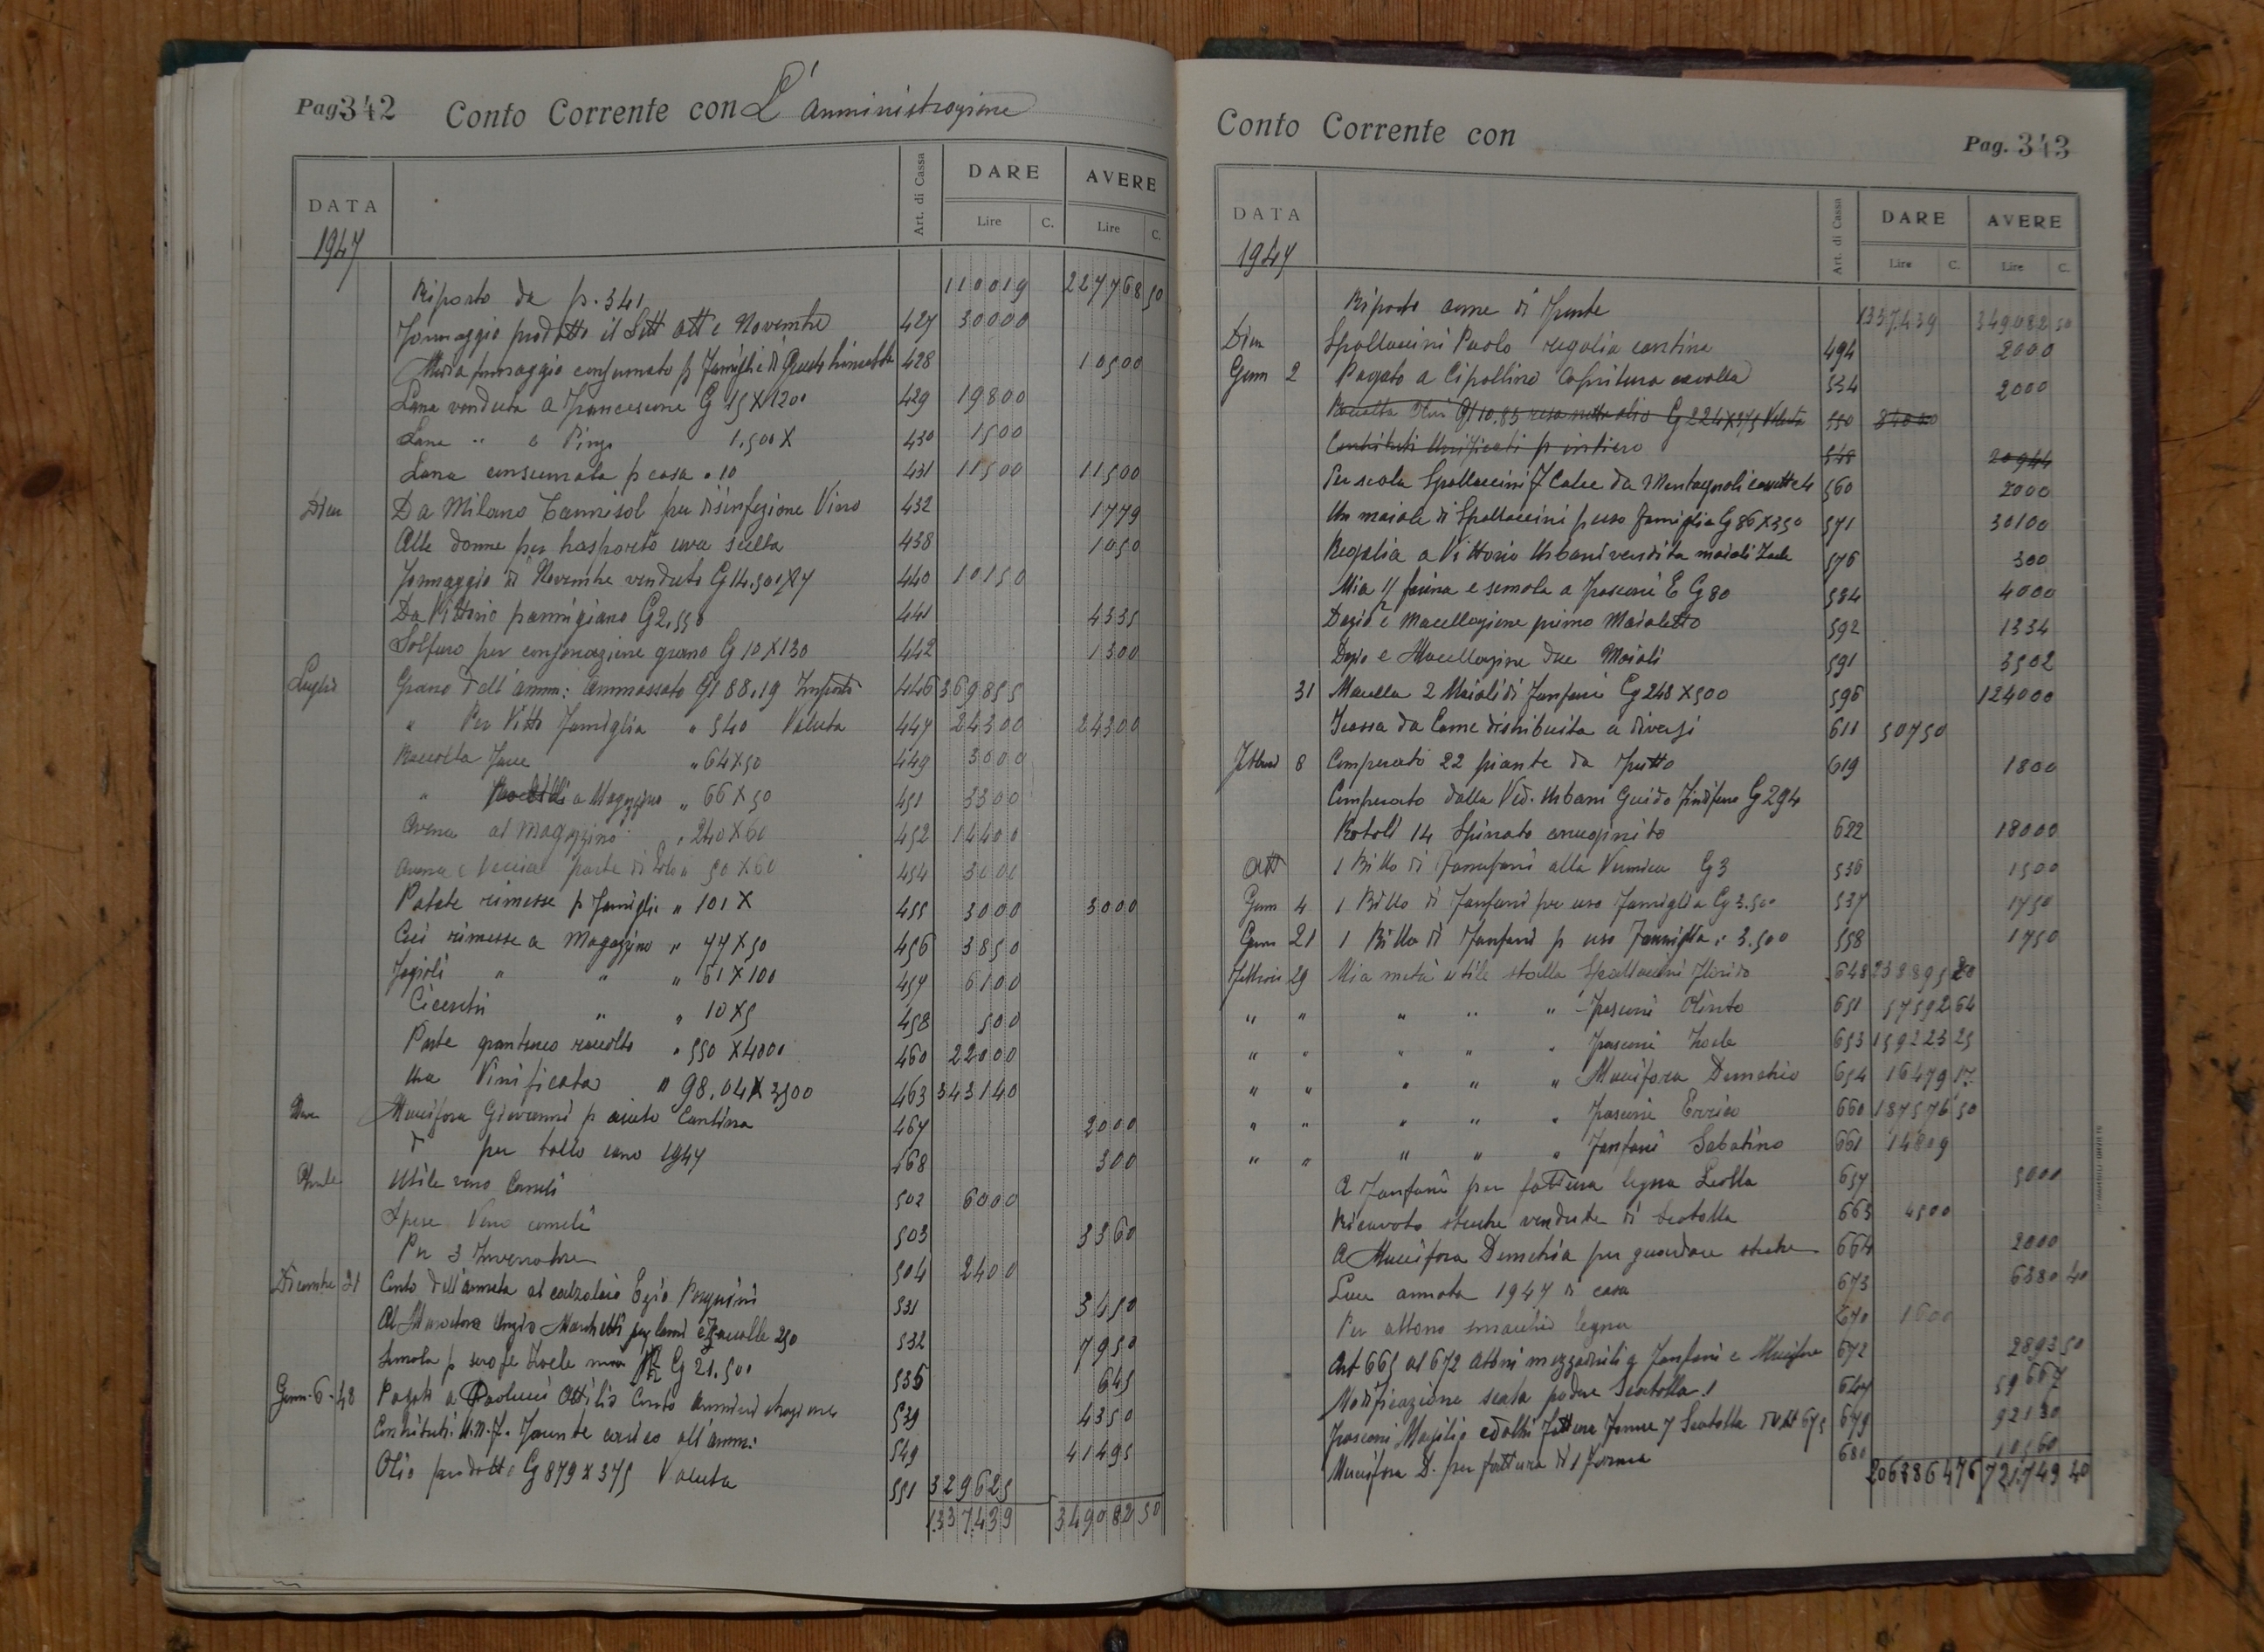 Pag. 342 Conto Corrente con L'Amministrazione
DATA Art. di Cassa DARE AVERE
Lire C. Lire C.
1947
Riporto da p. 341 110019 227768 50
Formaggio prodotto il Sett ott e Novembre 427 30000
formaggio consumato p famiglie di 428 10500
Lana venduta a Francescone G 15 X 1200 429 19800
Lana " a Pinzo 1,500 X 430 1500
Lana consumata p casa " 10 431 11500 11500
Dicm Da Milano Tannisol per disinfezione Vino 432 1779
Alle donne per trasporto uva scelta 438 1050
Formaggio di Novembre venduto G 14.500 X 7 440 10150
Da Vittorio parmigiano G 2,550 441 4335
Solfuro per conservazione grano G 10 X 130 442 1300
Luglio Grano dell'amm: ammassato Ql 88,19 Importo 446 369855
" Per Vitto famiglia " 540 Valuta 447 24300 24300
Raccolta Fave " 64 X 50 449 3000
" a Magazzino " 66 X 50 451 3300
Avena al Magazzino " 240 X 60 452 14400
Avena e veccia parte di " 50 X 60 454 3000
Patate rimesse p famiglia " 101 X 455 3000 3000
Ceci rimesse a Magazzino " 77 X 50 456 3850
Fagioli " " " 61 X 100 457 6100
Cicerchi " " 10 X 5 458 500
Parte granturco raccolto " 550 X 4000 460 22000
Uva Vinificata " 98,04 X 3500 463 343140
Mucifora Giovanni p aiuto Cantina 467 2000
d per bollo cane 1947 468 300
Utile vino Cameli 502 6000
Spese Vino cameli 503 3360
Per 3 504 2400
Dicembre 21 Conto dell'annata al calzolaio Ezio Pasquini 531 3450
Al Muratore Marchetti 250 532 7950
Semola p scrofe Iole G 21.500 536 645
Genn. 6 - 48 Pagato a Paolucci Ottilio Conto amministrazione 539 4350
Contributi U.N.F. carico all'amm: 549 41495
Olio prodotto G 879 X 375 Valuta 551 329625
1337.439 349082 50
Conto Corrente con Pag. 343
DATA Art. di Cassa DARE AVERE
Lire C. Lire C.
1947
Riporto come di fronte 1337.439 349082 50
Dicm Spollaccini Paolo regalia cantina 494 2000
Genn 2 Pagato a Cipollino Copritura cavalla 534 2000
Raccolta Olivi Ql 10,85 resa netta olio G 224 X 375 Valuta 550 84000
Contributi Unificati p intiero 548 20944
Per scola Spollaccini 7 Calce da Montagnoli 560 2000
Un maiale di Spollaccini p uso famiglia G 86 X 350 571 30100
Regalia a Vittorio Urbani vendita maiali Iole 576 300
Mia ½ farina e semola a Frasconi E G 80 584 4000
Dazio e Macellazione primo Maialetto 592 1334
Dazio e Macellazione due Maiali 591 3502
31 Macella 2 Maiali di Fanfani G 248 X 500 596 124000
Scossa da Carne distribuita a diversi 611 50750
Febbraio 8 Comperato 22 piante da frutto 619 1800
Comperato dalla Ved. Urbani Guido G 294
Rotoli 14 Spinato arruginito 622 18000
Ott 1 Billo di Fanfani alla G 3 536 1500
Genn 4 1 Billo di Fanfani per uso famiglia G 3.500 537 1750
Genn 21 1 Billo di Fanfani p uso Famiglia " 3.500 558 1750
Febbraio 29 Mia metà utile stalla Spollaccini Florido 648 238895 80
" " " " " Frasconi Olinto 651 57592 64
" " " " " Frasconi Iole 653 159223 25
" " " " " Mucifora Demetrio 654 16479 17
" " " " " Frasconi Errico 660 187576 50
" " " " " Fanfani Sabatino 661 14809
A Fanfani per fattura legna Scotolla 657 5000
Ricavato vendute di Scotolla 663 4500
A Mucifora Demetrio per guardare 664 2000
Luce annata 1947 di casa 673 6380 40
Per legna 670 1600
Art 665 al 672 mezzadrili q Fanfani e Mucifora 672 2893 50
Modificazione scala podere Scotolla 647 59667
Frasconi ed altri fattura Forme 7 Scotolla 679 92130
Mucifora D. per fattura di 1 Forma 680 10560
2063864 76 721.749 40